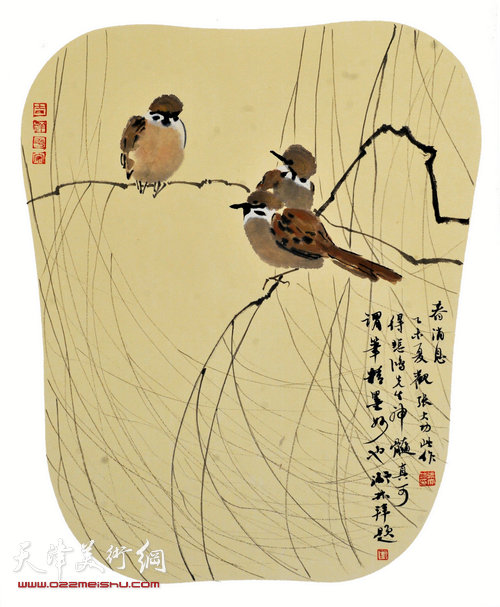 春消息
乙未夏观张大功此作
得悲鸿先生神髓真可
谓笔精墨妙也
拜题
天津美術網
www.022meishu.com